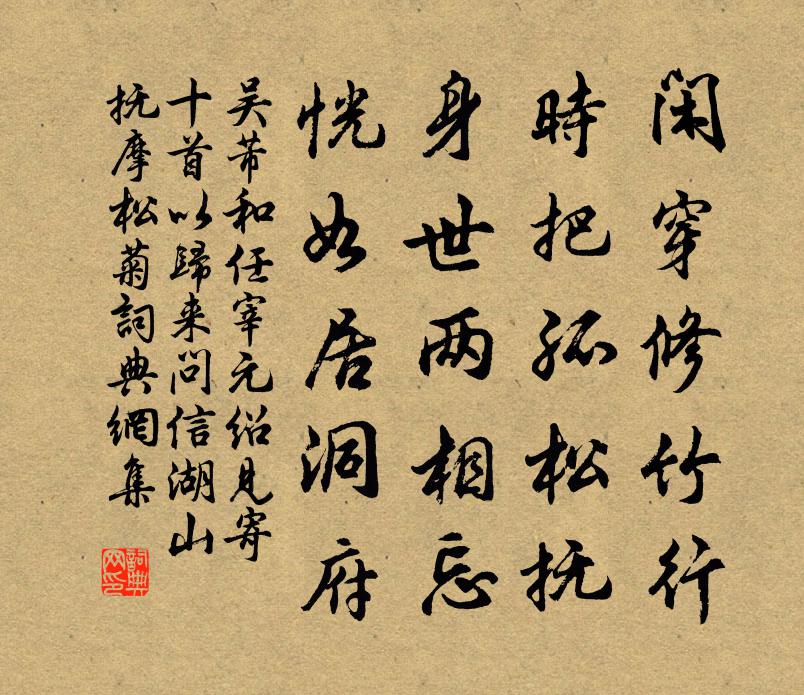 闲穿修竹行
時把孤松抚
身世两相忘
恍如居洞府
吴芾和任宰元绍見寄
十首以歸来问信湖山
抚摩松菊詞典網集
詞典網印